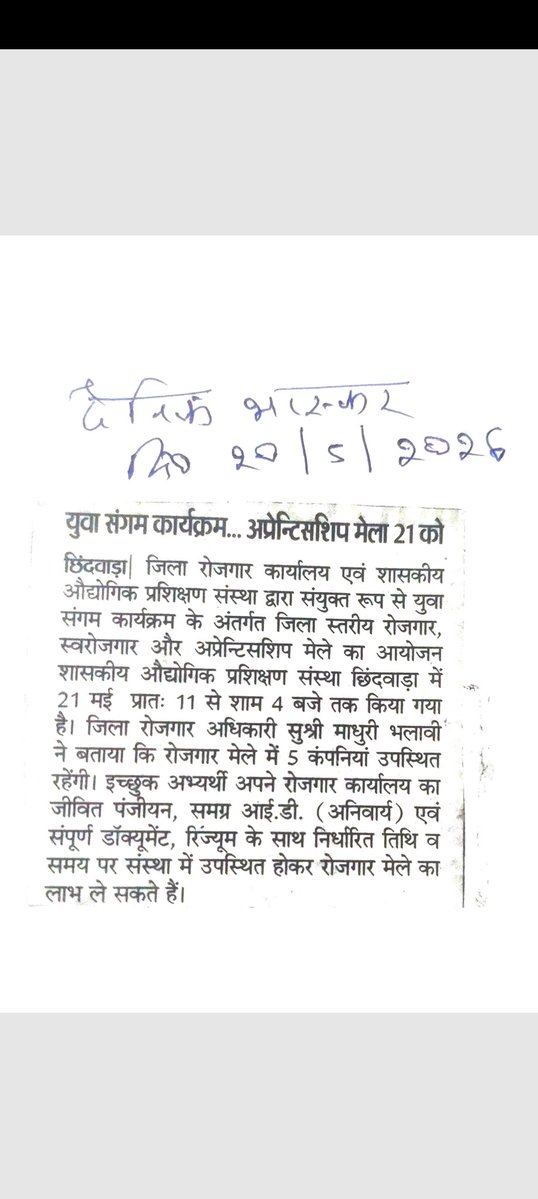 दैनिक भास्कर
दि० २०/5/२०२६
युवा संगम कार्यक्रम... अप्रेन्टिसशिप मेला 21 को
छिंदवाड़ा| जिला रोजगार कार्यालय एवं शासकीय
औद्योगिक प्रशिक्षण संस्था द्वारा संयुक्त रूप से युवा
संगम कार्यक्रम के अंतर्गत जिला स्तरीय रोजगार,
स्वरोजगार और अप्रेन्टिसशिप मेले का आयोजन
शासकीय औद्योगिक प्रशिक्षण संस्था छिंदवाड़ा में
21 मई प्रातः 11 से शाम 4 बजे तक किया गया
है। जिला रोजगार अधिकारी सुश्री माधुरी भलावी
ने बताया कि रोजगार मेले में 5 कंपनियां उपस्थित
रहेंगी। इच्छुक अभ्यर्थी अपने रोजगार कार्यालय का
जीवित पंजीयन, समग्र आई.डी. (अनिवार्य) एवं
संपूर्ण डॉक्यूमेंट, रिज्यूम के साथ निर्धारित तिथि व
समय पर संस्था में उपस्थित होकर रोजगार मेले का
लाभ ले सकते हैं।